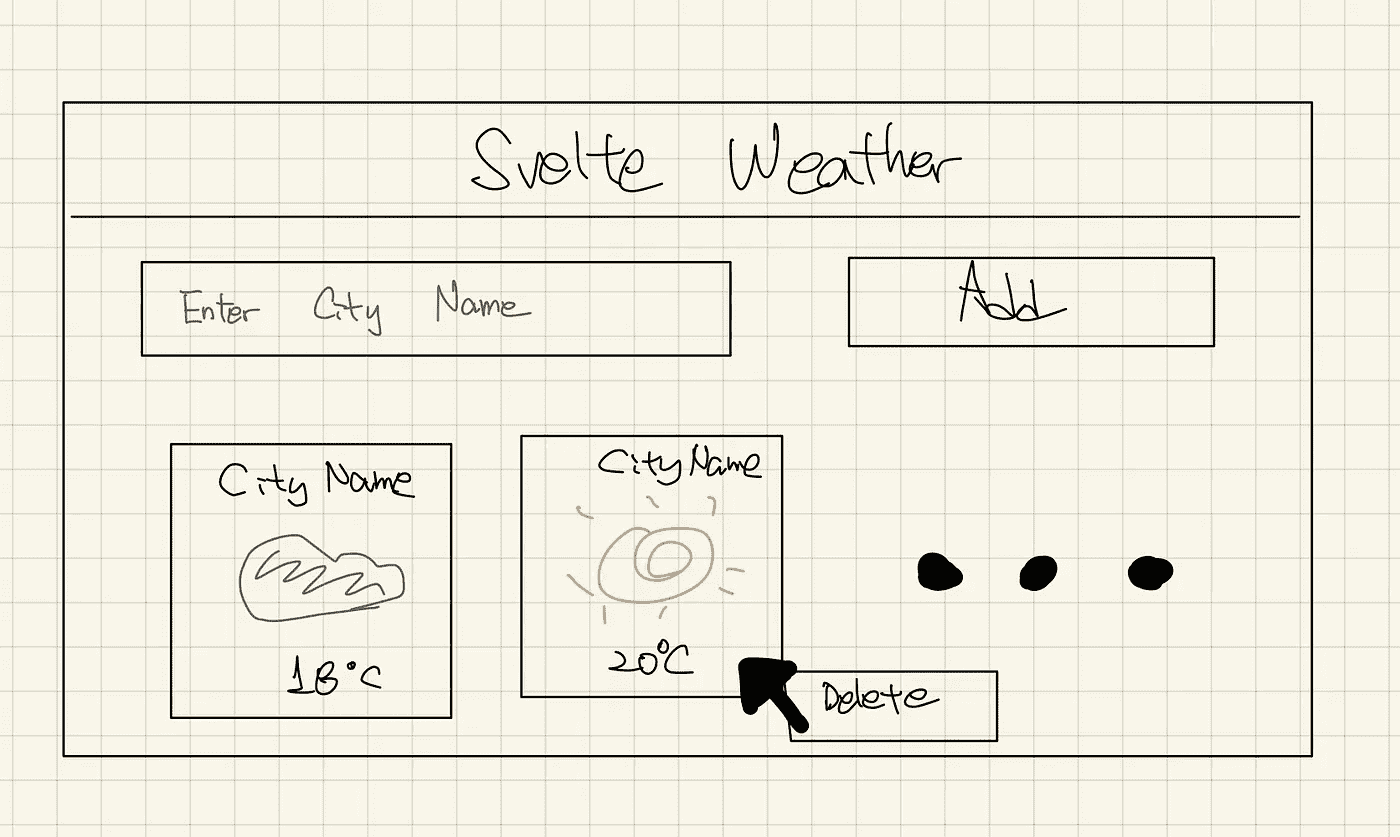 Svelte Weather
Enter City Name
Add
City Name
18°C
City Name
20°C
Delete